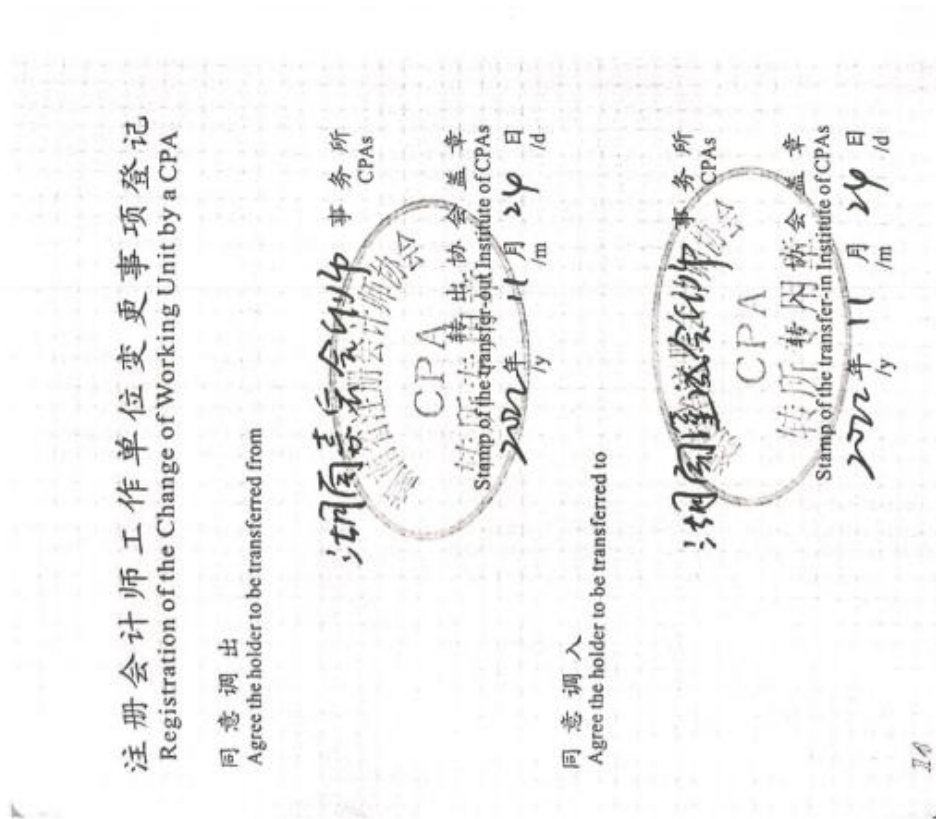 注册会计师工作单位变更事项登记
Registration of the Change of Working Unit by a CPA
同意调出
Agree the holder to be transferred from
事务所
CPAs
CPA
转出协会盖章
Stamp of the transfer-out Institute of CPAs
2022年 11月 24日
/y /m /d
同意调入
Agree the holder to be transferred to
事务所
CPAs
CPA
转所
转入协会盖章
Stamp of the transfer-in Institute of CPAs
2022年 11月 24日
/y /m /d